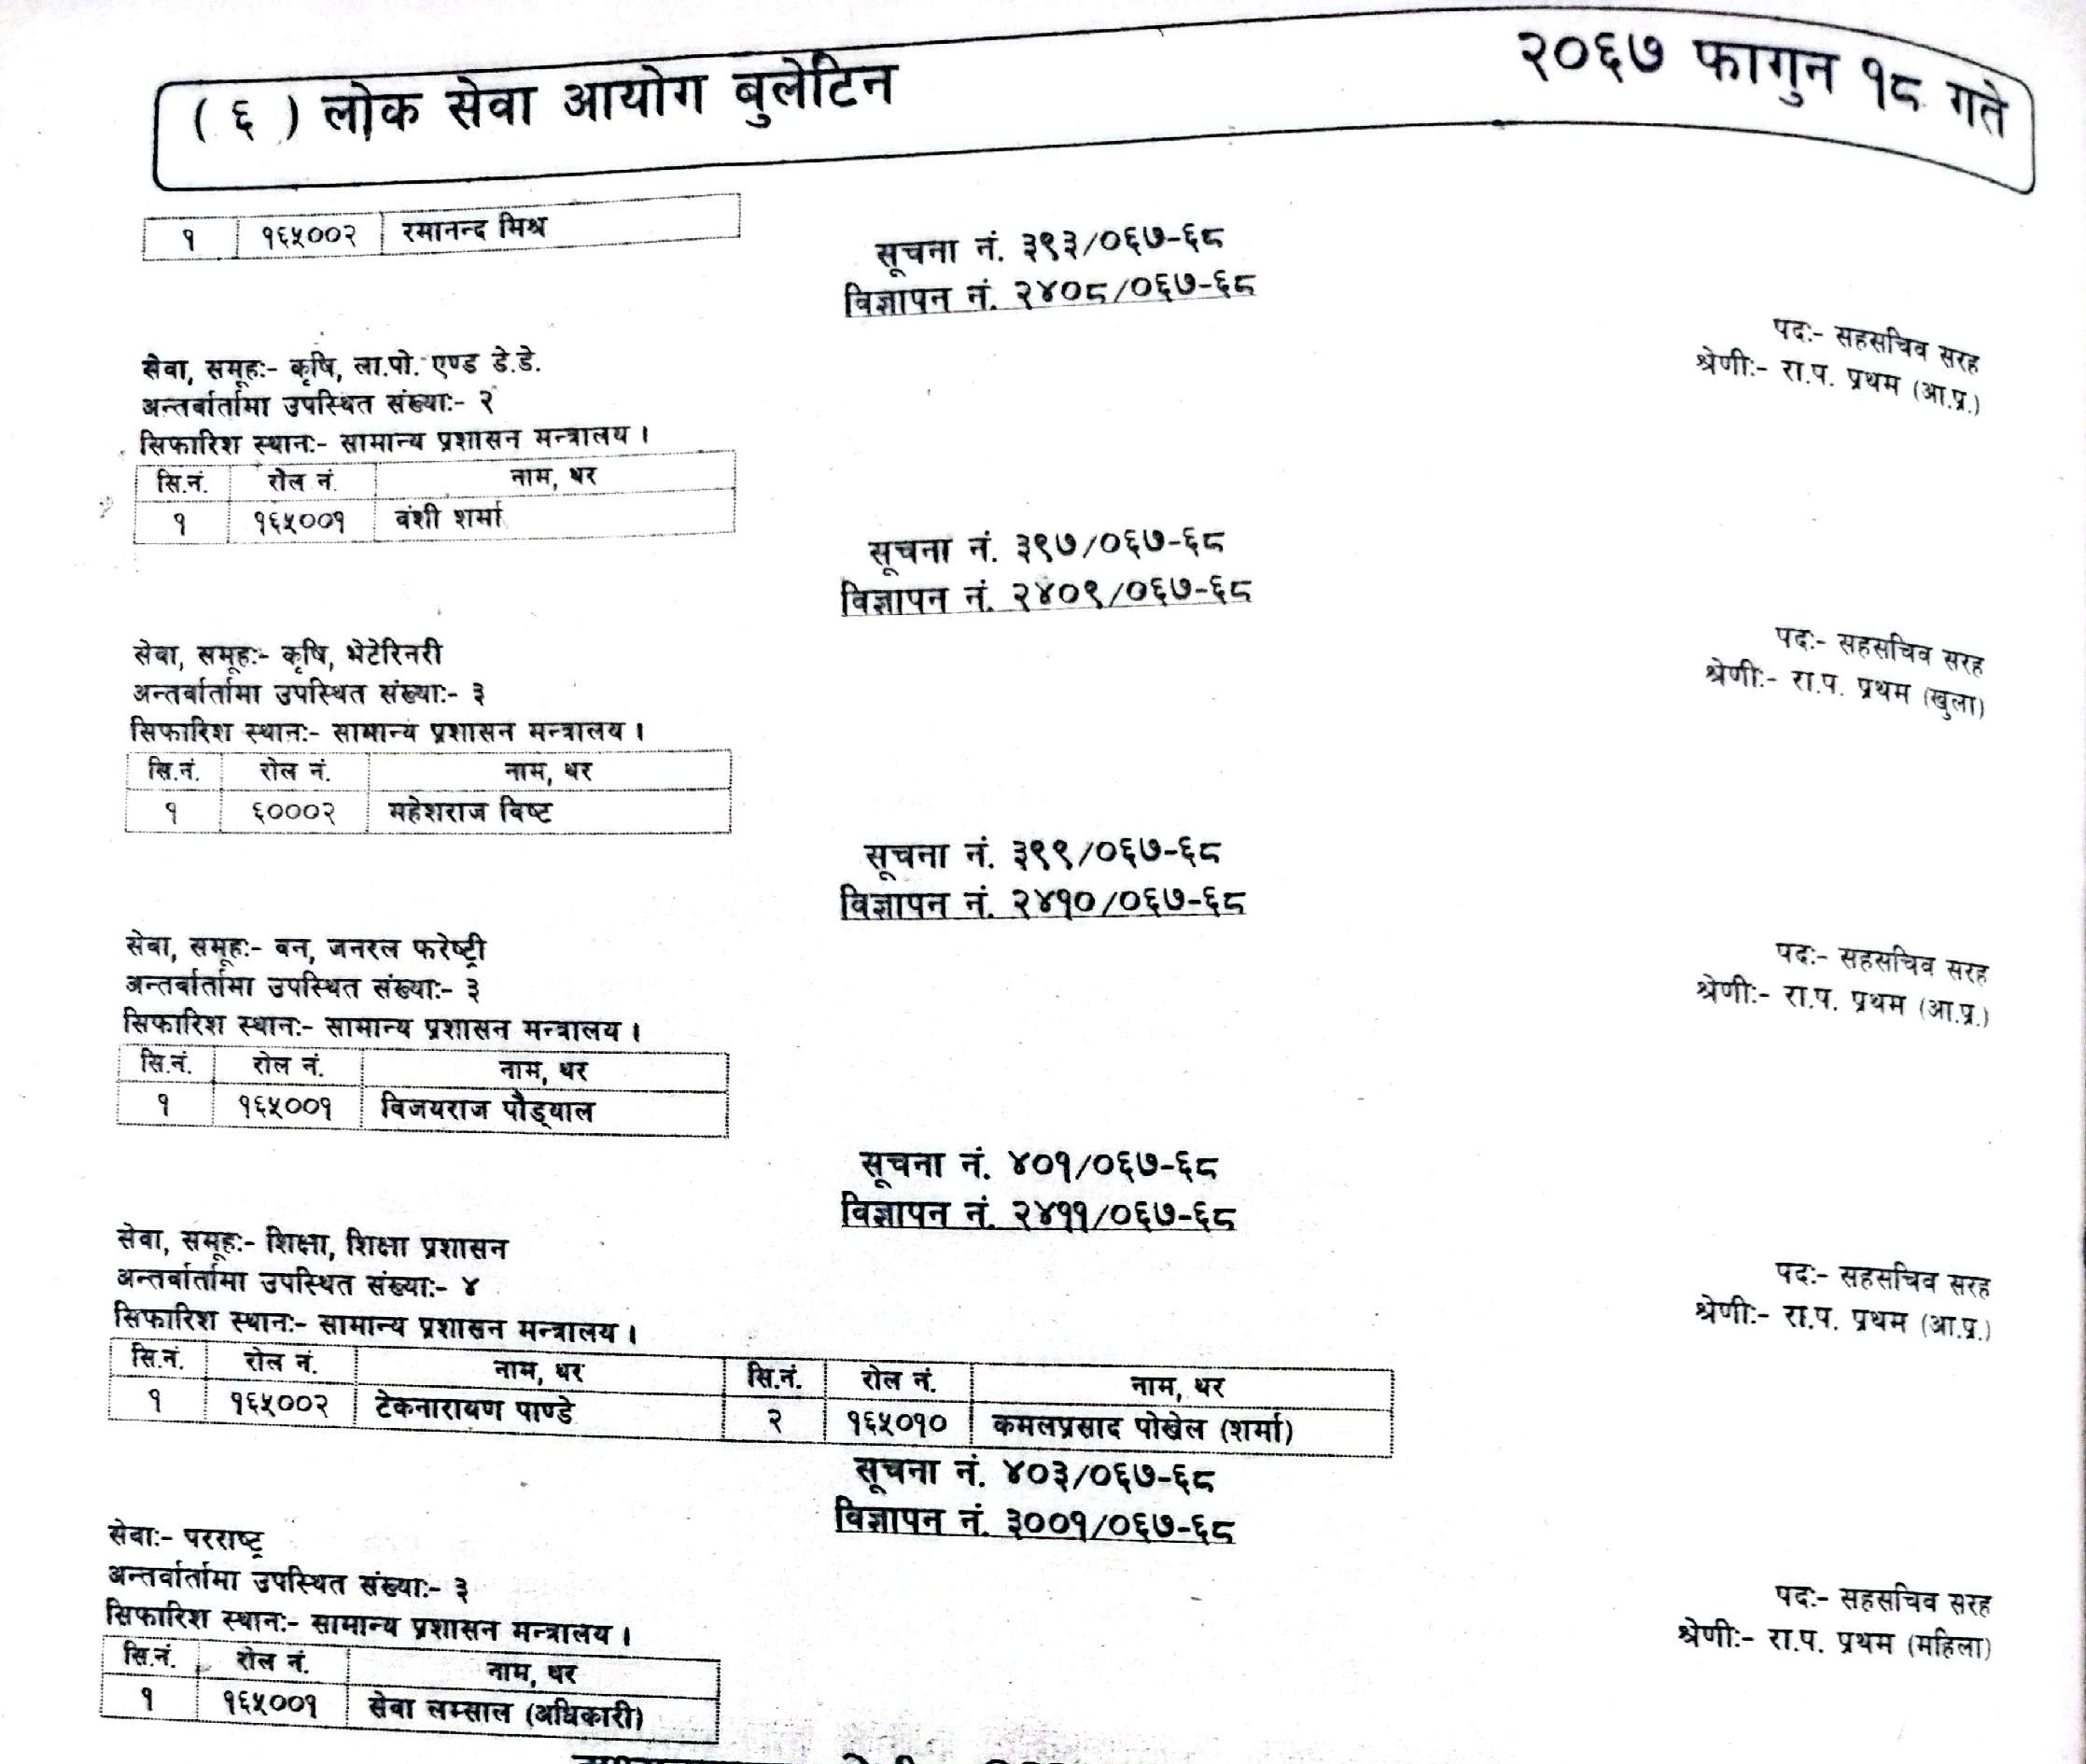 ( ६ ) लोक सेवा आयोग बुलेटिन २०६७ फागुन १८ गते
१ १६५००२ रमानन्द मिश्र
सूचना नं. ३९३/०६७-६८
विज्ञापन नं. २४०८/०६७-६८
सेवा, समूहः- कृषि, ला.पो. एण्ड डे.डे. पदः- सहसचिव सरह
अन्तर्वार्तामा उपस्थित संख्याः- २ श्रेणीः- रा.प. प्रथम (आ.प्र.)
सिफारिश स्थानः- सामान्य प्रशासन मन्त्रालय ।
सि.नं. रोल नं. नाम, थर
१ १६५००१ वंशी शर्मा
सूचना नं. ३९७/०६७-६८
विज्ञापन नं. २४०९/०६७-६८
सेवा, समूहः- कृषि, भेटेरिनरी पदः- सहसचिव सरह
अन्तर्वार्तामा उपस्थित संख्याः- ३ श्रेणीः- रा.प. प्रथम (खुला)
सिफारिश स्थानः- सामान्य प्रशासन मन्त्रालय ।
सि.नं. रोल नं. नाम, थर
१ ६०००२ महेशराज विष्ट
सूचना नं. ३९९/०६७-६८
विज्ञापन नं. २४१०/०६७-६८
सेवा, समूहः- वन, जनरल फरेष्ट्री पदः- सहसचिव सरह
अन्तर्वार्तामा उपस्थित संख्याः- ३ श्रेणीः- रा.प. प्रथम (आ.प्र.)
सिफारिश स्थानः- सामान्य प्रशासन मन्त्रालय ।
सि.नं. रोल नं. नाम, थर
१ १६५००१ विजयराज पौड्याल
सूचना नं. ४०१/०६७-६८
विज्ञापन नं. २४११/०६७-६८
सेवा, समूहः- शिक्षा, शिक्षा प्रशासन पदः- सहसचिव सरह
अन्तर्वार्तामा उपस्थित संख्याः- ४ श्रेणीः- रा.प. प्रथम (आ.प्र.)
सिफारिश स्थानः- सामान्य प्रशासन मन्त्रालय ।
सि.नं. रोल नं. नाम, थर सि.नं. रोल नं. नाम, थर
१ १६५००२ टेकनारायण पाण्डे २ १६५०१० कमलप्रसाद पोखेल (शर्मा)
सूचना नं. ४०३/०६७-६८
विज्ञापन नं. ३००१/०६७-६८
सेवाः- परराष्ट्र पदः- सहसचिव सरह
अन्तर्वार्तामा उपस्थित संख्याः- ३ श्रेणीः- रा.प. प्रथम (महिला)
सिफारिश स्थानः- सामान्य प्रशासन मन्त्रालय ।
सि.नं. रोल नं. नाम, थर
१ १६५००१ सेवा लम्साल (अधिकारी)